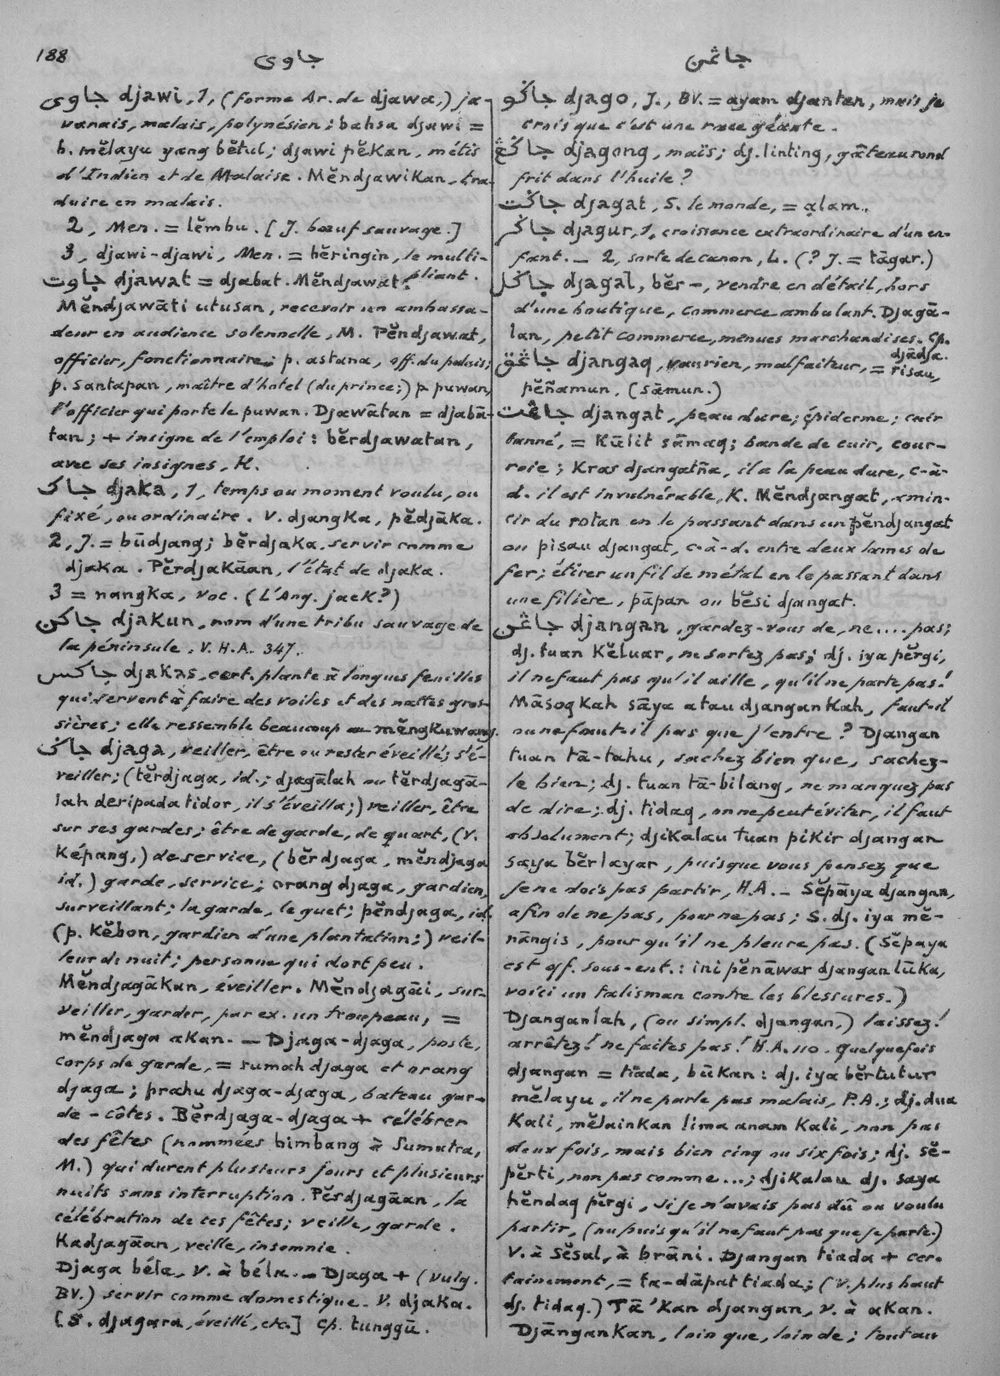 188
جاوى
جاڠن
جاوى djawi, 1, (forme Ar. de djawa,) ja-
vanais, malais, polynésien; bahsa djawi =
b. mĕlayu yang bĕtul; djawi pĕkan, métis
d'Indien et de Malaise. Mĕndjawikan, tra-
duire en malais.
2, Men. = lĕmbu. [J. bœuf sauvage.]
3, djawi-djawi, Men. = bĕringin, le multi-
pliant.
جاوت djawat = djabat. Mĕndjawat.
Mĕndjawāti utusan, recevoir un ambassa-
deur en audience solennelle, M. Pĕndjawat,
officier, fonctionnaire; p. astana, off. du palais;
p. santapan, maître d'hotel (du prince;) p. puwan,
l'officier qui porte le puwan. Djawātan = djabā-
tan; + insigne de l'emploi: bĕrdjawatan,
avec ses insignes, H.
جاک djaka, 1, temps ou moment voulu, ou
fixé, ou ordinaire. V. djangka, pĕdjāka.
2, J. = būdjang; bĕrdjaka, servir comme
djaka. Pĕrdjakāan, l'état de djaka.
3 = nangka, voc. (L'Ang. jack?)
جاکن djakun, nom d'une tribu sauvage de
la péninsule. V. H.A. 347.
جاکس djakas, cert. plante à longues feuilles
qui servent à faire des voiles et des nattes gros-
sières; elle ressemble beaucoup au mĕngkuwang.
جاݢ djaga, veiller, être ou rester éveillés, s'é-
veiller; (tĕrdjaga, id.; djagālah ou tĕrdjagā-
lah deripada tidor, il s'éveilla;) veiller, être
sur ses gardes; être de garde, de quart, (V.
Képang,) de service, (bĕrdjaga, mĕndjaga
id.) garde, service; orang djaga, gardien,
surveillant; la garde, le guet; pĕndjaga, id.
(p. Kĕbon, gardien d'une plantation;) veil-
leur de nuit; personne qui dort peu.
Mĕndjagākan, éveiller. Mĕndjagāi, sur-
veiller, garder, par ex. un troupeau, =
mĕndjaga akan. — Djaga-djaga, poste,
corps de garde, = rumah djaga et orang
djaga; prahu djaga-djaga, bateau gar-
de-côtes. Bĕrdjaga-djaga + célébrer
des fêtes (nommées bimbang à Sumatra,
M.) qui durent plusieurs jours et plusieurs
nuits sans interruption. Pĕrdjagāan, la
célébration de ces fêtes; veille, garde.
Kadjagāan, veille, insomnie.
Djaga béla, V. à béla. — Djaga + (vulg.
BV.) servir comme domestique. V. djaka.
[S. djagara, éveillé, etc.] Cp. tunggū.
جاݢو djago, J., BV. = ayam djantan, mais je
crois que c'est une race géante.
جاݢوڠ djagong, maïs; dj. linting, gâteau rond
frit dans l'huile?
جاݢت djagat, S. le monde, = alam.
جاݢر djagur, 1, croissance extraordinaire d'un en-
fant. — 2, sorte de canon, L. (? J. = tāgar.)
جاݢل djagal, bĕr-, vendre en détail, hors
d'une boutique, commerce ambulant. Djagā-
lan, petit commerce, menues marchandises. Cp.
djādja.
جاڠق djangaq, vaurien, malfaiteur, = risau,
pĕñamun. (sāmun.)
جاڠت djangat, peau dure; épiderme; cuir
tanné, = Kūlit sāmaq; bande de cuir, cour-
roie; Kras djangatña, il a la peau dure, c-à-
d. il est invulnérable, K. Mĕndjangat, amin-
cir du rotan en le passant dans un pĕndjangat
ou pisau djangat, c-à-d. entre deux lames de
fer; étirer un fil de métal en le passant dans
une filière, pāpan ou bĕsi djangat.
جاڠن djangan, gardez-vous de, ne.... pas;
dj. tuan Kĕluar, ne sortez pas; dj. iya pĕrgi,
il ne faut pas qu'il aille, qu'il ne parte pas!
Māsoqkah sāya atau djangankah, faut-il
ou ne faut-il pas que j'entre? Djangan
tuan tā-tahu, sachez bien que, sachez-
le bien; dj. tuan tā-bilang, ne manquez pas
de dire; dj. tidaq, on ne peut éviter, il faut
absolument; djikalau tuan pikir djangan
saya bĕrlayar, puisque vous pensez que
je ne dois pas partir, H.A. — Sĕpāya djangan,
afin de ne pas, pour ne pas; S. dj. iya mĕ-
nāngis, pour qu'il ne pleure pas. (Sĕpaya
est qf. sous-ent.: ini pĕnāwar djangan lūka,
voici un talisman contre les blessures.)
Djanganlah, (ou simpl. djangan,) laissez!
arrêtez! ne faites pas! H.A. 110. Quelquefois
djangan = tiada, būkan: dj. iya bĕrtutur
mĕlayu, il ne parle pas malais, P.A.; dj. dua
Kali, mĕlainkan lima anam Kali, non pas
deux fois, mais bien cinq ou six fois; dj. sĕ-
pĕrti, non pas comme...; djikalau dj. saya
hĕndaq pĕrgi, si je n'avais pas dû ou voulu
partir, (ou puisqu'il ne faut pas que je parte.)
V. à Sĕsal, à brāni. Djangan tiada + cer-
tainement, = ta-dāpat tiada; (V. plus haut
dj. tidaq.) Tā'kan djangan, V. à akan.
Djāngankan, loin que, loin de; tout au